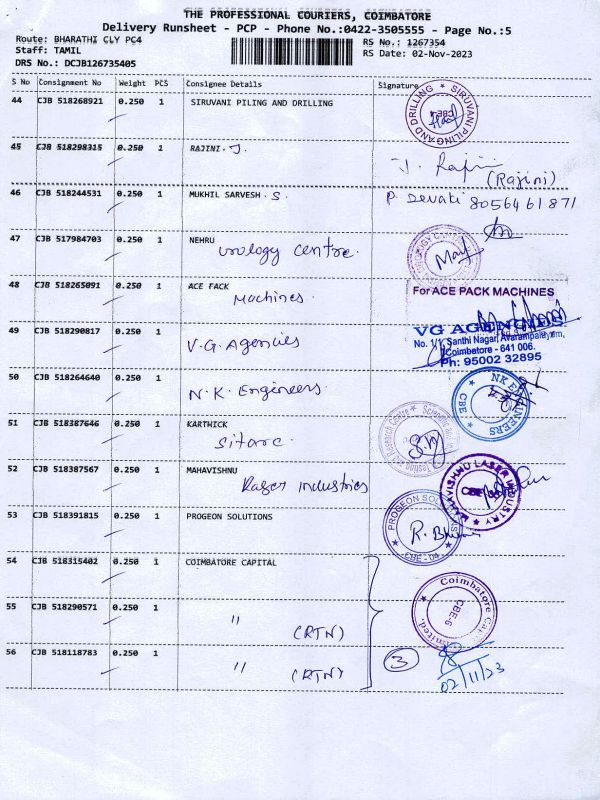 THE PROFESSIONAL COURIERS, COIMBATORE
Delivery Runsheet - PCP - Phone No.:0422-3505555 - Page No.:5
Route: BHARATHI CLY PC4
RS No.: 1267354
Staff: TAMIL
RS Date: 02-Nov-2023
DRS No.: DCJB126735405
S No Consignment No Weight PCS Consignee Details Signature
44 CJB 518268921 0.250 1 SIRUVANI PILING AND DRILLING
SIRUVANI PILING AND DRILLING
45 CJB 518298315 0.250 1 RAJINI. J.
J. Rajini
(Rajini)
46 CJB 518244531 0.250 1 MUKHIL SARVESH . S.
P. Devaki 8056461871
47 CJB 517984703 0.250 1 NEHRU
urology centre.
48 CJB 518265091 0.250 1 ACE FACK
Machines.
For ACE PACK MACHINES
49 CJB 518290817 0.250 1
V.G. Agencies
VG AGENCIES
No. 1/1, Santhi Nagar, Avarampalayam,
Coimbatore - 641 006.
Ph: 95002 32895
50 CJB 518264640 0.250 1
N.K. Engineers.
NK ENGINEERS
CBE
51 CJB 518387646 0.250 1 KARTHICK
Sitarc.
52 CJB 518387567 0.250 1 MAHAVISHNU
Laser Industries
MAHAVISHNU LASER INDUSTRY
53 CJB 518391815 0.250 1 PROGEON SOLUTIONS
PROGEON SOLUTIONS
CBE - 04
54 CJB 518315402 0.250 1 COIMBATORE CAPITAL
Coimbatore Capital Limited.
CBE-6
55 CJB 518290571 0.250 1 "
(RTN)
56 CJB 518118783 0.250 1 "
(RTN)
3
02/11/23